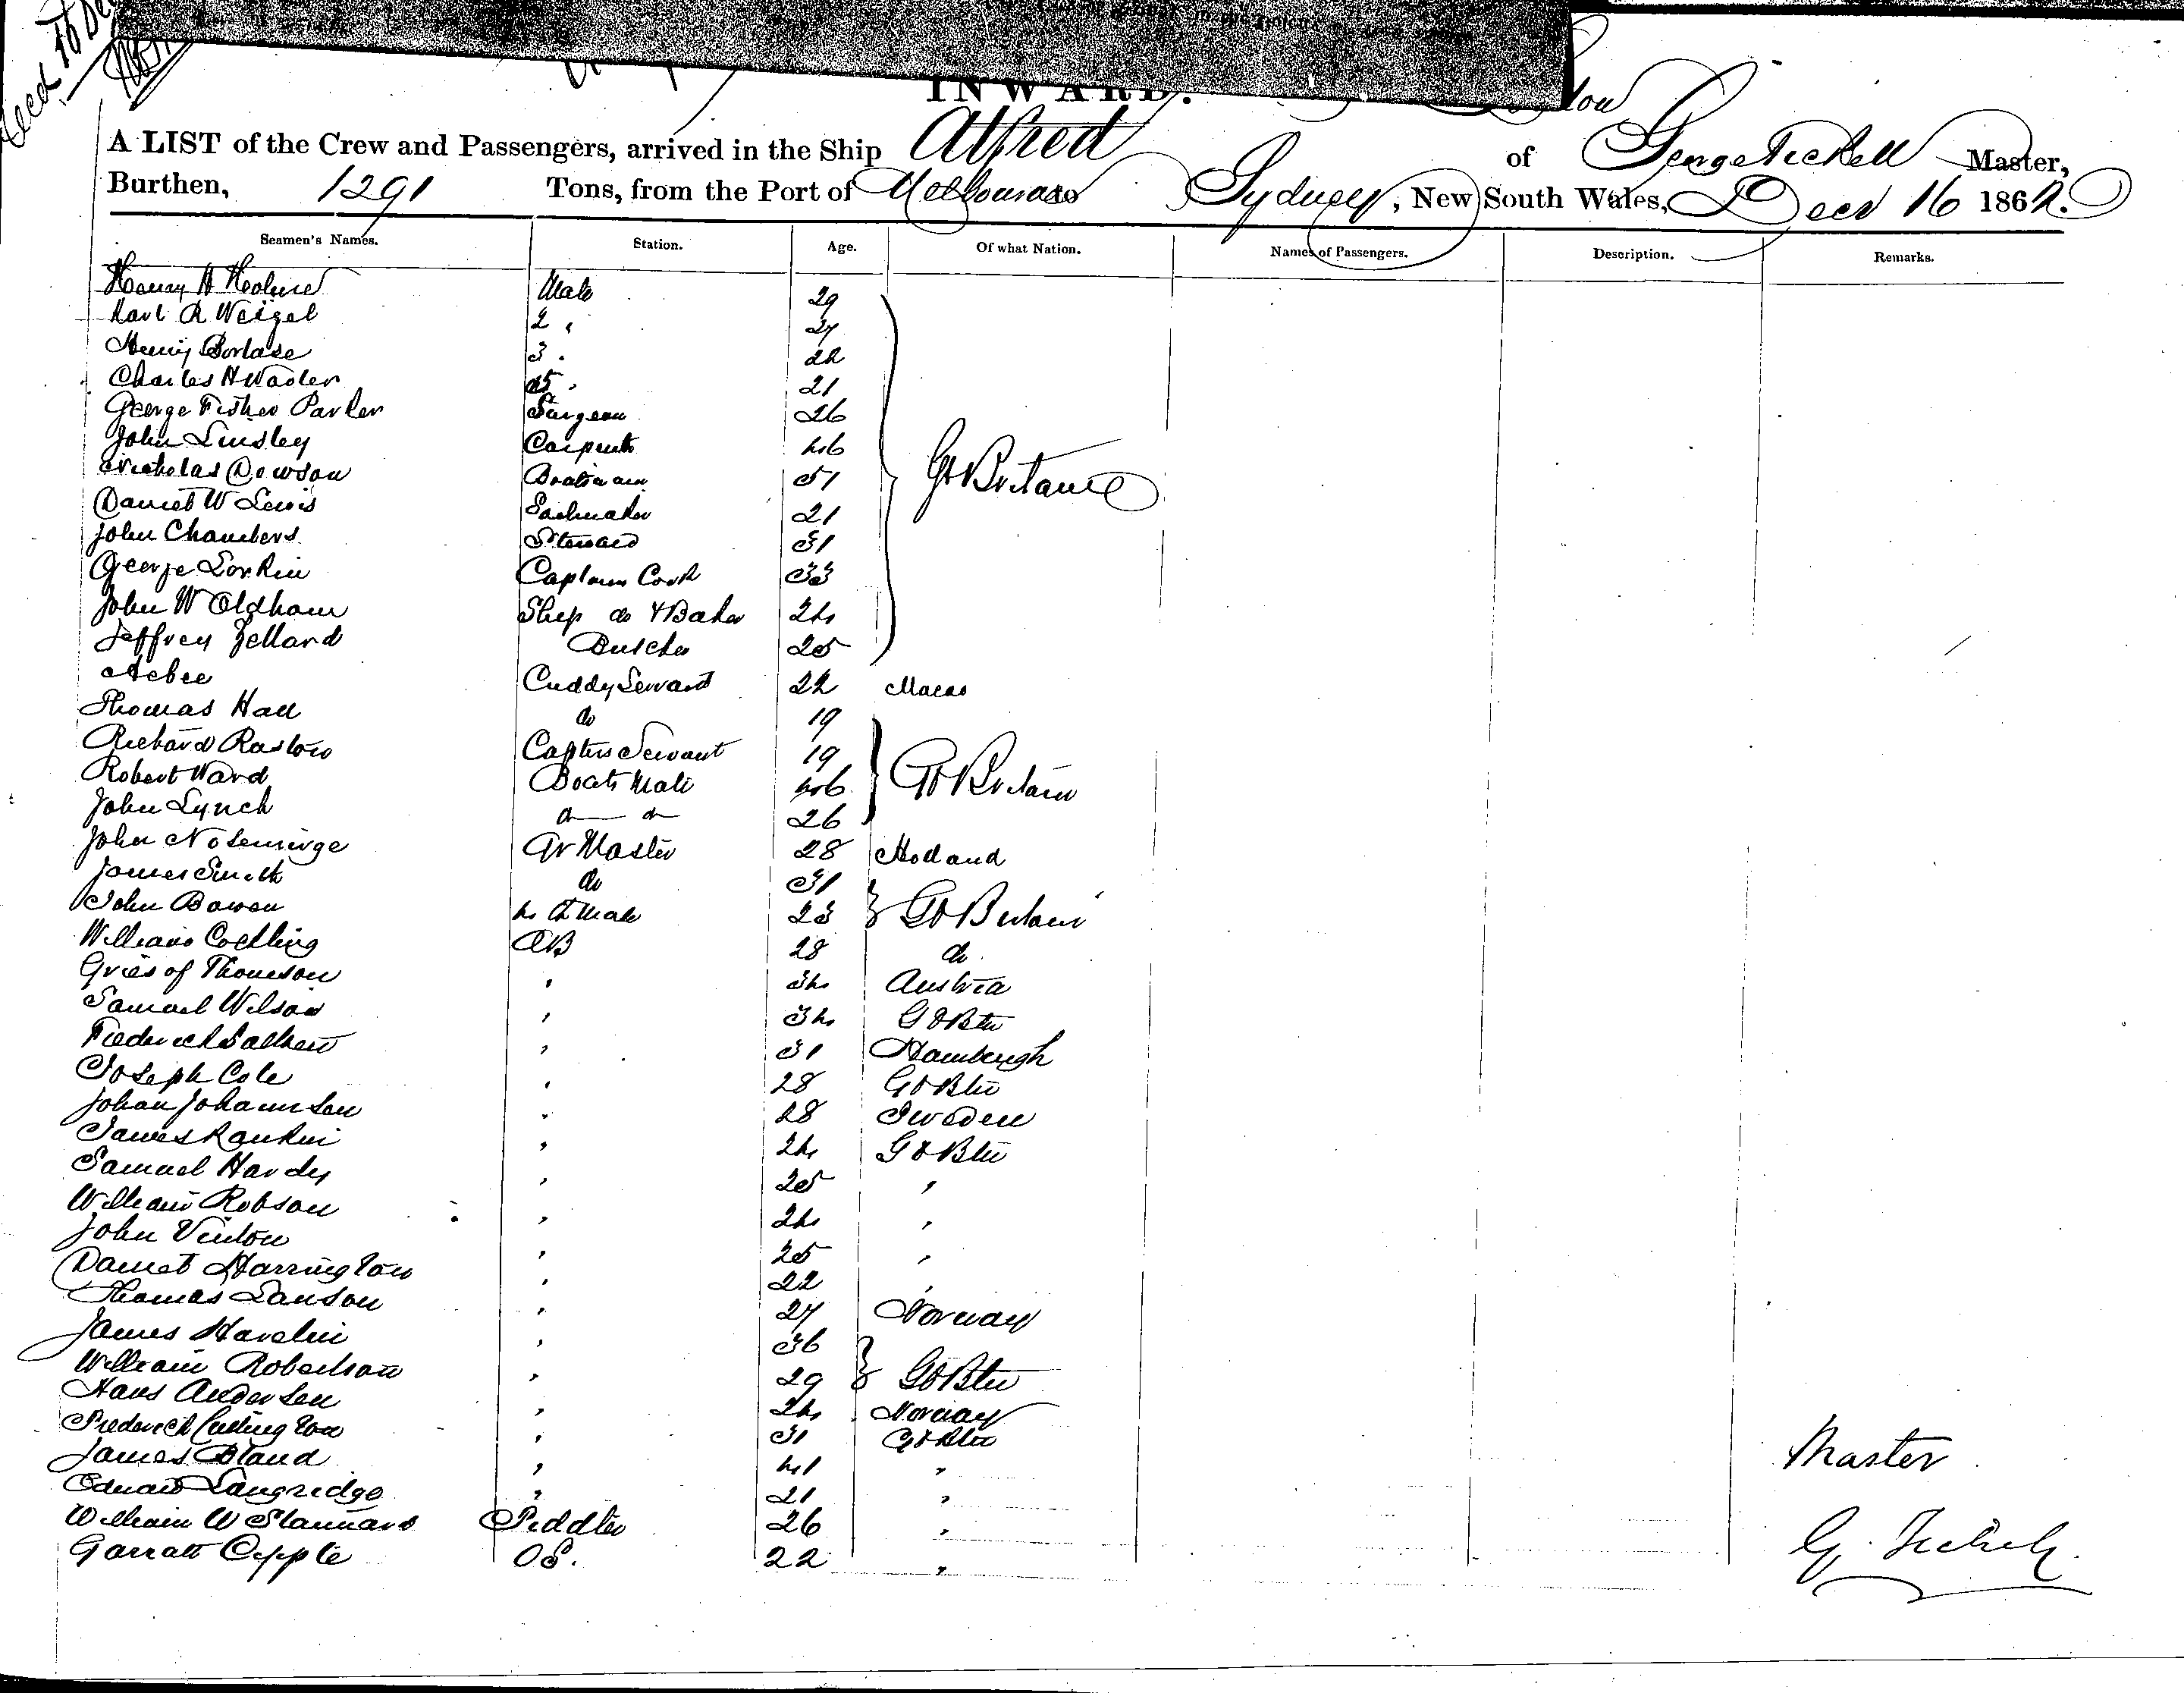 INWARD.
A LIST of the Crew and Passengers, arrived in the Ship Alfred of George Tickell Master,
Burthen, 1291 Tons, from the Port of Melbourne to Sydney, New South Wales, Decr 16 1862.
Seamen's Names. Station. Age. Of what Nation. Names of Passengers. Description. Remarks.
Mate 29
Karl R Weigel 2 " 27
Henry Borlase 3 " 22
Charles H 21
George Fisher Parker Surgeon 26
John Linsley Carpentr 46
Nicholas Dowson Boatswain 51 Gt Britain
Daniel W Lewis Sailmaker 21
John Chambers Steward 31
George Lorkin Captains Cook 33
John W Oldham Ships do & Baker 24
Jeffrey Zelland Butcher 25
Cuddy Servant 22 Macao
Thomas Hall do 19
Richard Raslow Captns Servant 19
Robert Ward Boats Mate 46 Gt Britain
John Lynch do do 26
John Qr Master 28 Holland
James Smith do 31
John Bowen Mate 23 Gt Britain
William AB 28 do
Thomson " 34 Austria
Samuel Wilson " 34 Gt Btn
Frederick " 31 Hamburgh
Joseph Cole " 28 Gt Btn
Johan Johannsen " 28 Sweden
James Rankin " 24 Gt Btn
Samuel Hardy " 25 "
William Robson " 24 "
John Vinton " 25 "
Daniel Harrington " 22 "
Thomas Lanson " 27 Norway
James Havelin " 36
William Robertson " 29 Gt Btn
Hans Andersen " 24 Norway
Frederick Cullington " 31 Gt Btn
James Bland " 41 "
Edward Langridge " 21 "
William W Stannard Piddler 26 "
Garratt Cypple OS. 22 "
Master
G. Tickell